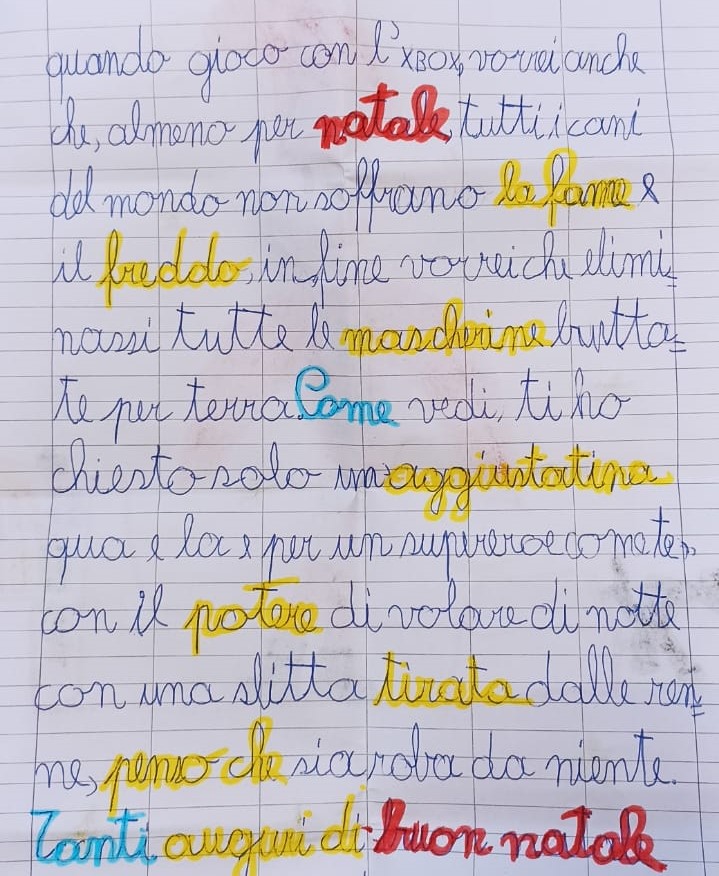 quando gioco con l'XBOX, vorrei anche
che, almeno per natale, tutti i cani
del mondo non soffrano la fame e
il freddo, in fine vorrei che elimi=
nassi tutte le mascherine butta=
te per terra. Come vedi, ti ho
chiesto solo un aggiustatina
qua e la e per un supereroe come te,
con il potere di volare di notte
con una slitta tirata dalle ren=
ne, penso che sia roba da niente.
Tanti auguri di buon natale